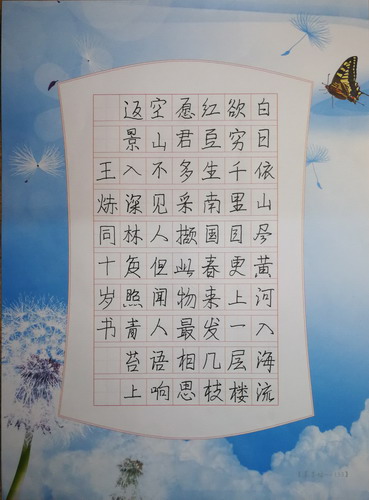 白日依山尽黄河入海流
欲穷千里目更上一层楼
红豆生南国春来发几枝
愿君多采撷此物最相思
空山不见人但闻人语响
返景入深林复照青苔上
王同十岁书